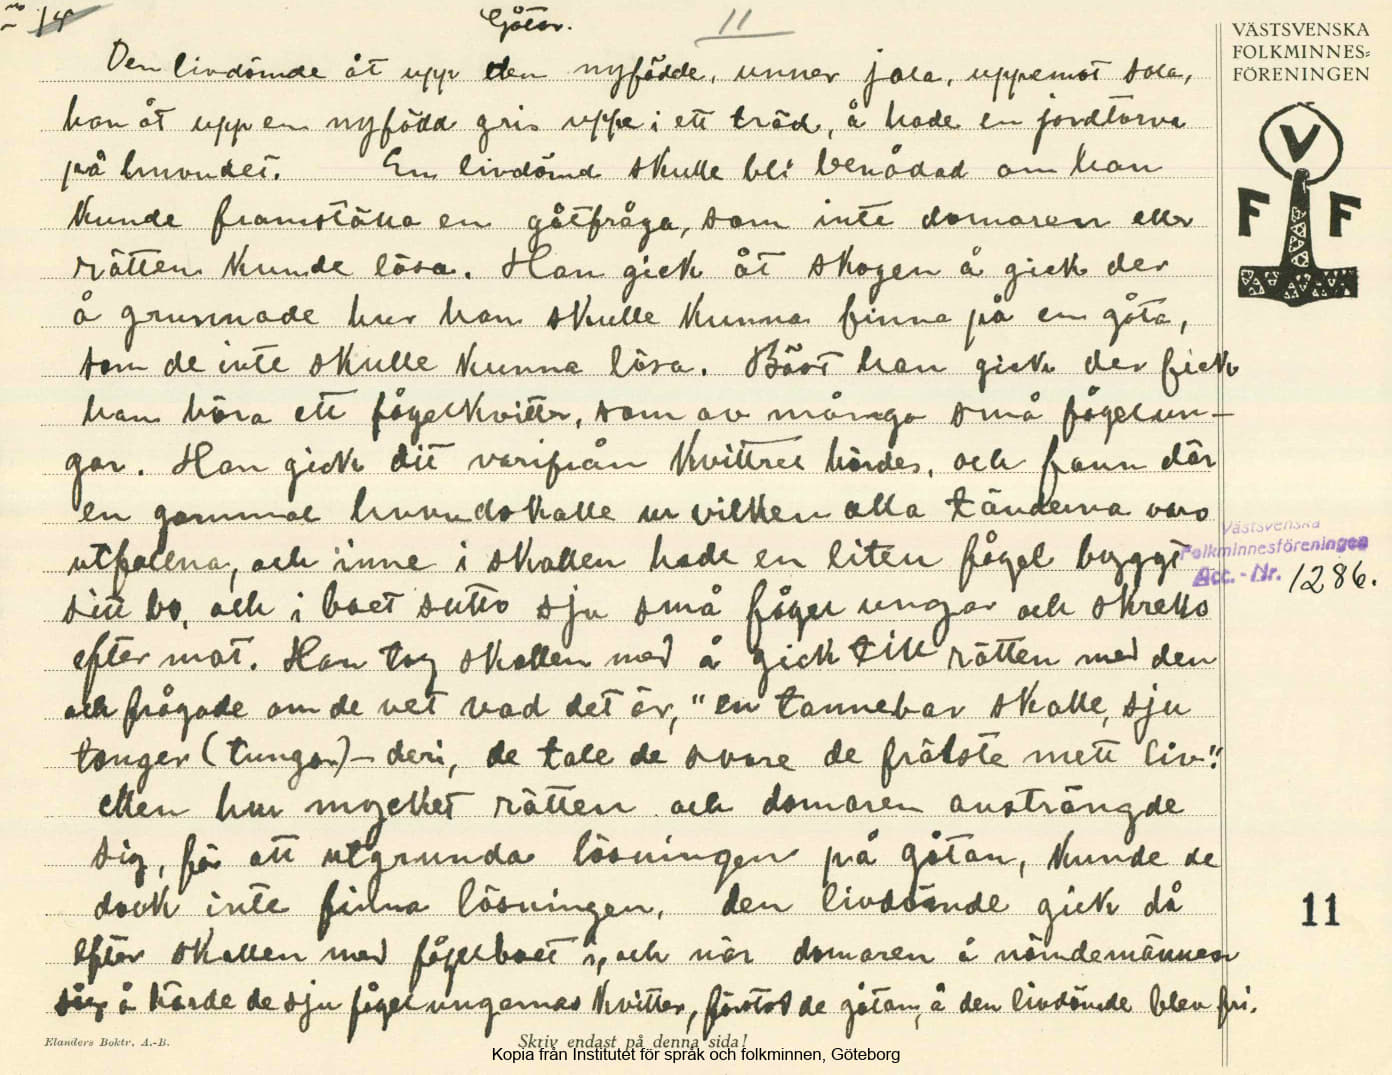 14
Gåtor.
11
VÄSTSVENSKA
FOLKMINNES-
FÖRENINGEN
V
F F
Den livdömde åt upp den nyfödde, unner jola, uppemot sola,
han åt upp en nyfödd gris uppe i ett träd, å hade en jordtorva
på huvudet. En livdömd skulle bli benådad om han
kunde framställa en gåtfråga, som inte domaren eller
rätten kunde lösa. Han gick åt skogen å gick der
å grunnade hur han skulle kunna finna på en gåta,
som de inte skulle kunna lösa. Bäst han gick der fick
han höra ett fågelkvitter, som av många små fågelun-
gar. Han gick dit varifrån kvittret hördes, och fann där
en gammal huvudskalle ur vilken alla tänderna voro
utfallna, och inne i skallen hade en liten fågel byggt
sitt bo, och i boet sutto sju små fågel ungar och skreko
efter mat. Han tog skallen med å gick till rätten med den
och frågade om de vet vad det är, "en tannebar skalle, sju
tonger (tungor) - deri, de tale de svare de frälste mett liv".
Men hur mycket rätten och domaren ansträngde
sig, för att utgrunda lösningen på gåtan, kunde de
dock inte finna lösningen, den livdömde gick då
efter skallen med fågelboet i, och när domaren å nämdemännen
såg å hörde de sju fågel ungarnas kvitter, förstod de gåtan, å den livdömde blev fri.
Västsvenska
Folkminnesföreningen
Acc. - Nr. 1286.
11
Elanders Boktr. A.-B.
Skriv endast på denna sida!
Kopia från Institutet för språk och folkminnen, Göteborg